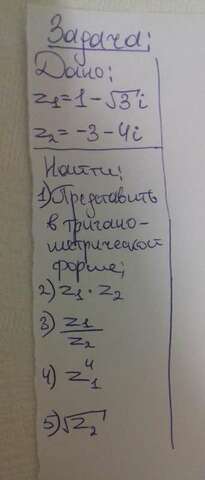 Задача:
Дано:
z₁ = 1 - √3 i
z₂ = -3 - 4i
Найти:
1) Представить
в тригано-
метрической
форме;
2) z₁ · z₂
3) z₁/z₂
4) z₁⁴
5) √z₂